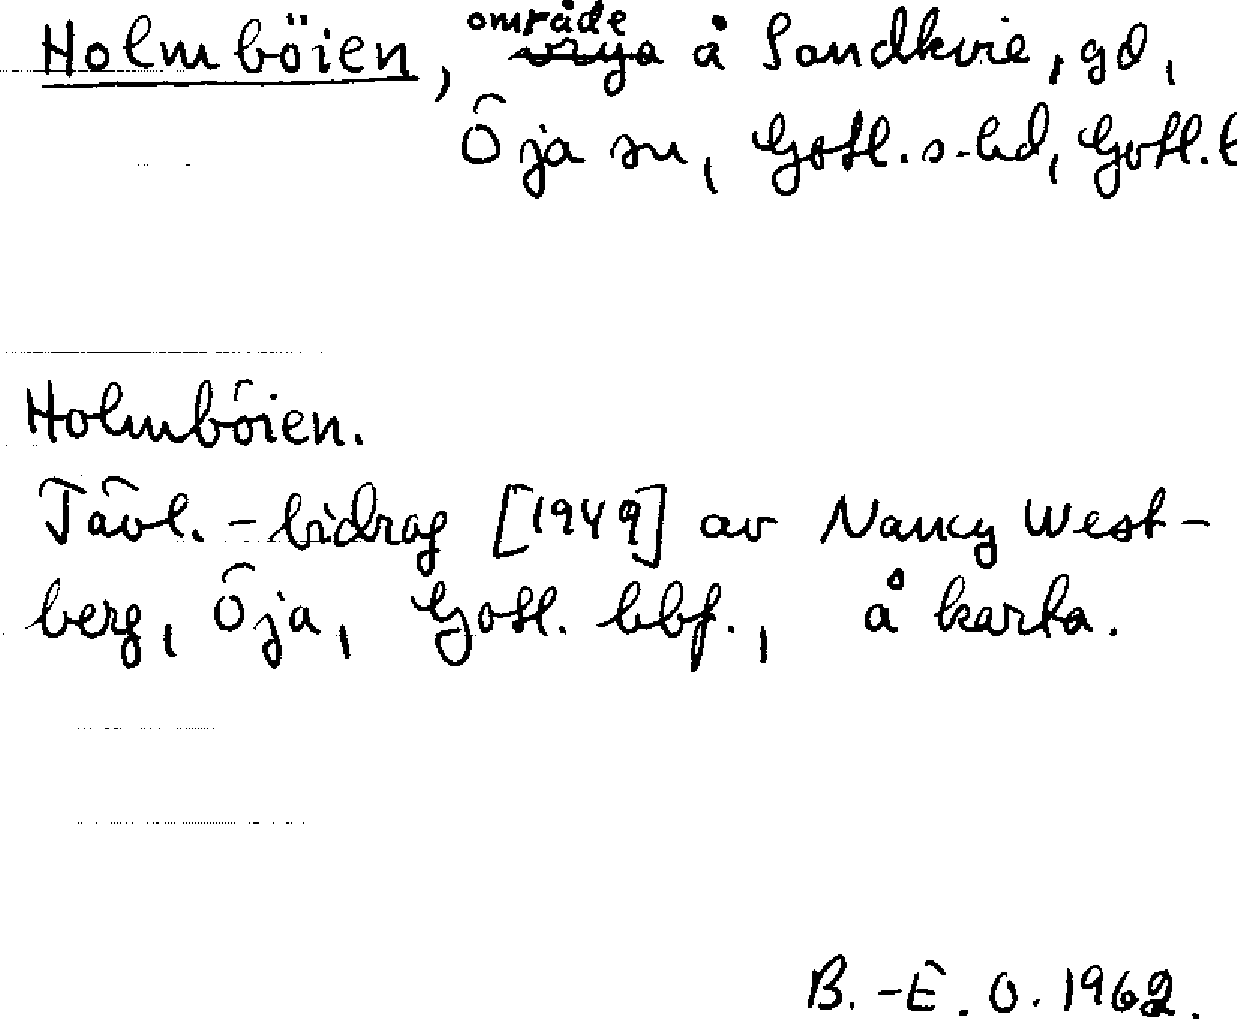 Holmböien, område å Sandkvie, gd,
Öja sn, Gotl. s-hd, Gotl. l
Holmböien.
Tävl.-bidrag [1949] av Nancy West-
berg, Öja, Gotl. bbf., å karta.
B.-E. O. 1962.